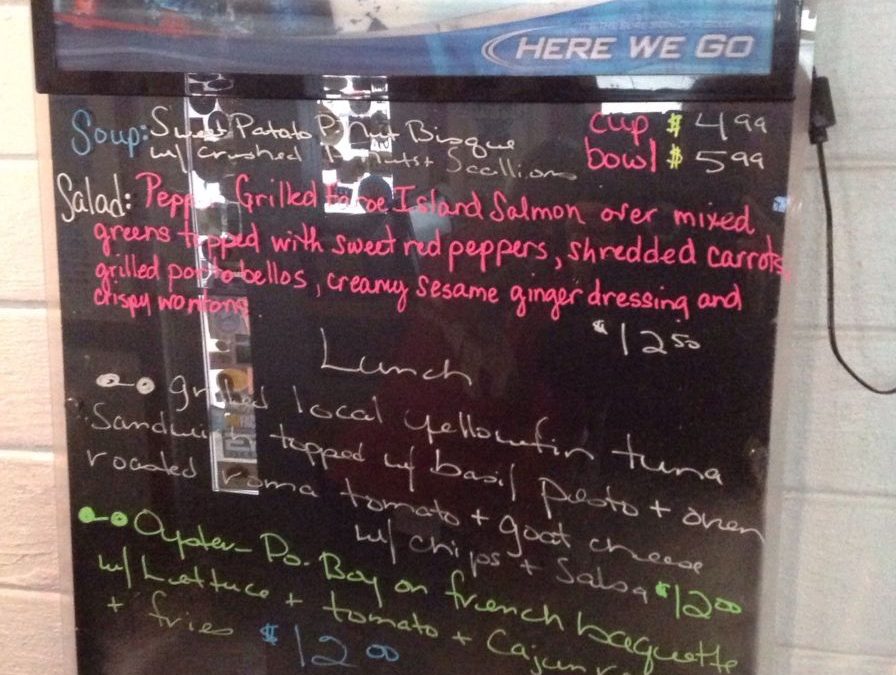 HERE WE GO
Soup: Sweet Patato P.Nut Bisque
w/ crushed P.Nuts + Scallions
cup $ 4 99
bowl $ 5 99
Salad: Pepper Grilled Faroe Island Salmon over mixed
greens topped with sweet red peppers, shredded carrots,
grilled portobellos, creamy sesame ginger dressing and
crispy wontons
$12 50
Lunch
grilled local yellowfin tuna
Sandwich topped w/ basil pesto + oven
roasted roma tomato + goat cheese
w/ chips + Salsa $12 00
Oyster Po. Boy on french baguette
w/ Lettuce + tomato + Cajun
+ fries $12 00